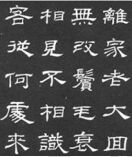 離家老大回
無改鬢毛衰
相見不相識
客從何處來